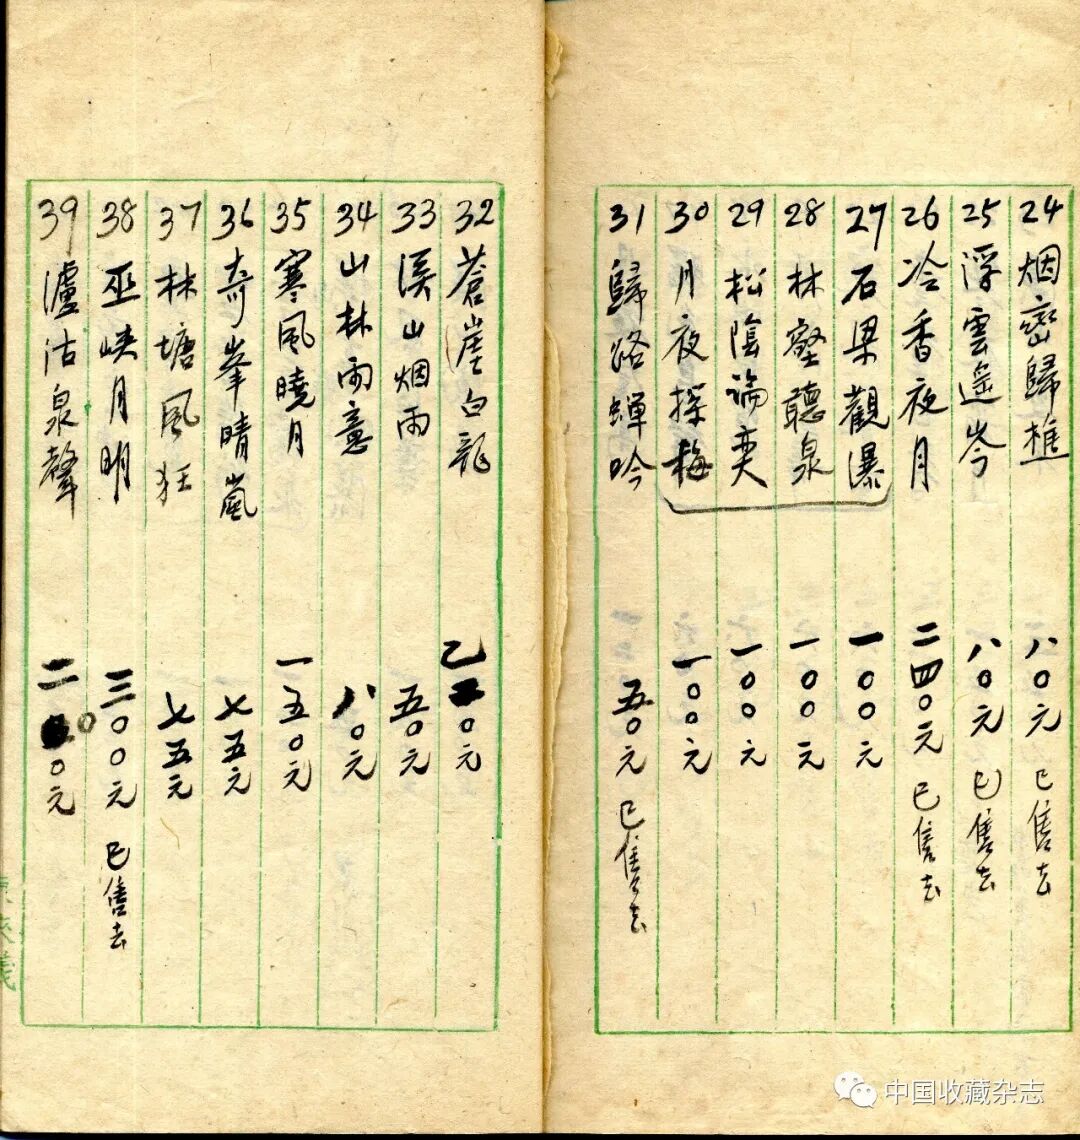 24 烟巒歸樵 八〇元 已售去
25 浮雲遥岑 八〇元 已售去
26 冷香夜月 二四〇元 已售去
27 石梁觀瀑 一〇〇元
28 林壑聽泉 一〇〇元
29 松陰論奕 一〇〇元
30 月夜探梅 一〇〇元
31 歸路蟬吟 五〇元 已售去
32 蒼崖白龍 〇元
33 溪山烟雨 五〇元
34 山林雨意 八〇元
35 寒風曉月 一五〇元
36 奇峯晴嵐 七五元
37 林塘風狂 七五元
38 巫峽月明 三〇〇元 已售去
39 瀘沽泉聲 二〇〇元
中国收藏杂志